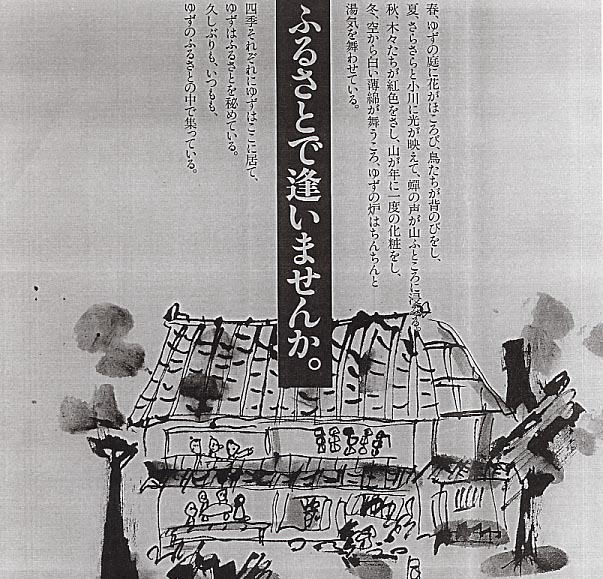 春、ゆずの庭に花がほころび、鳥たちが背のびをし、
夏、さらさらと小川に光が映えて、蟬の声が山ふところに浸みる。
秋、木々たちが紅色をさし、山が年に一度の化粧をし、
冬、空から白い薄綿が舞うころ、ゆずの炉はちんちんと
湯気を舞わせている。
ふるさとで逢いませんか。
四季それぞれにゆずはここに居て、
ゆずはふるさとを秘めている。
久しぶりも、いつもも、
ゆずのふるさとの中で集っている。